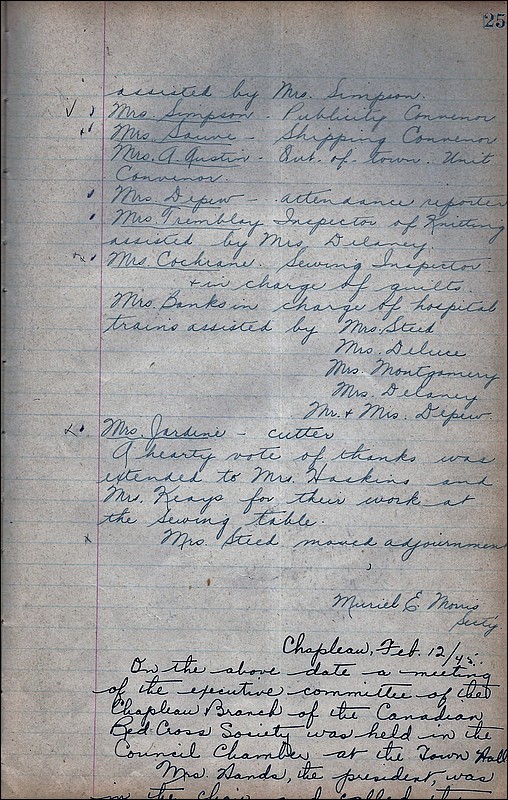 25
assisted by Mrs. Simpson.
Mrs. Simpson. Publicity Convenor
Mrs. Sauve - Shipping Convenor
Mrs. A. Austin - Out. of town. Unit
Convenor.
Mrs. Depew - attendance reporter
Mrs Tremblay Inspector of Knitting
assisted by Mrs. Delaney.
Mrs Cochrane. Sewing Inspector
+ in charge of quilts.
Mrs Banks in charge of hospital
trains assisted by Mrs. Steed
Mrs. Deluce
Mrs. Montgomery
Mrs. Delaney
Mr. & Mrs. Depew.
Mrs. Jardine - cutter
A hearty vote of thanks was
extended to Mrs. Haskins and
Mrs. Keays for their work at
the Sewing table.
Mrs. Steed moved adjournment
Muriel E. Morris
Secty.
Chapleau, Feb. 12/45.
On the above date a meeting
of the executive committee of the
Chapleau Branch of the Canadian
Red Cross Society was held in the
Council Chamber at the Town Hall
Mrs. Hands, the president, was
in the chair and called